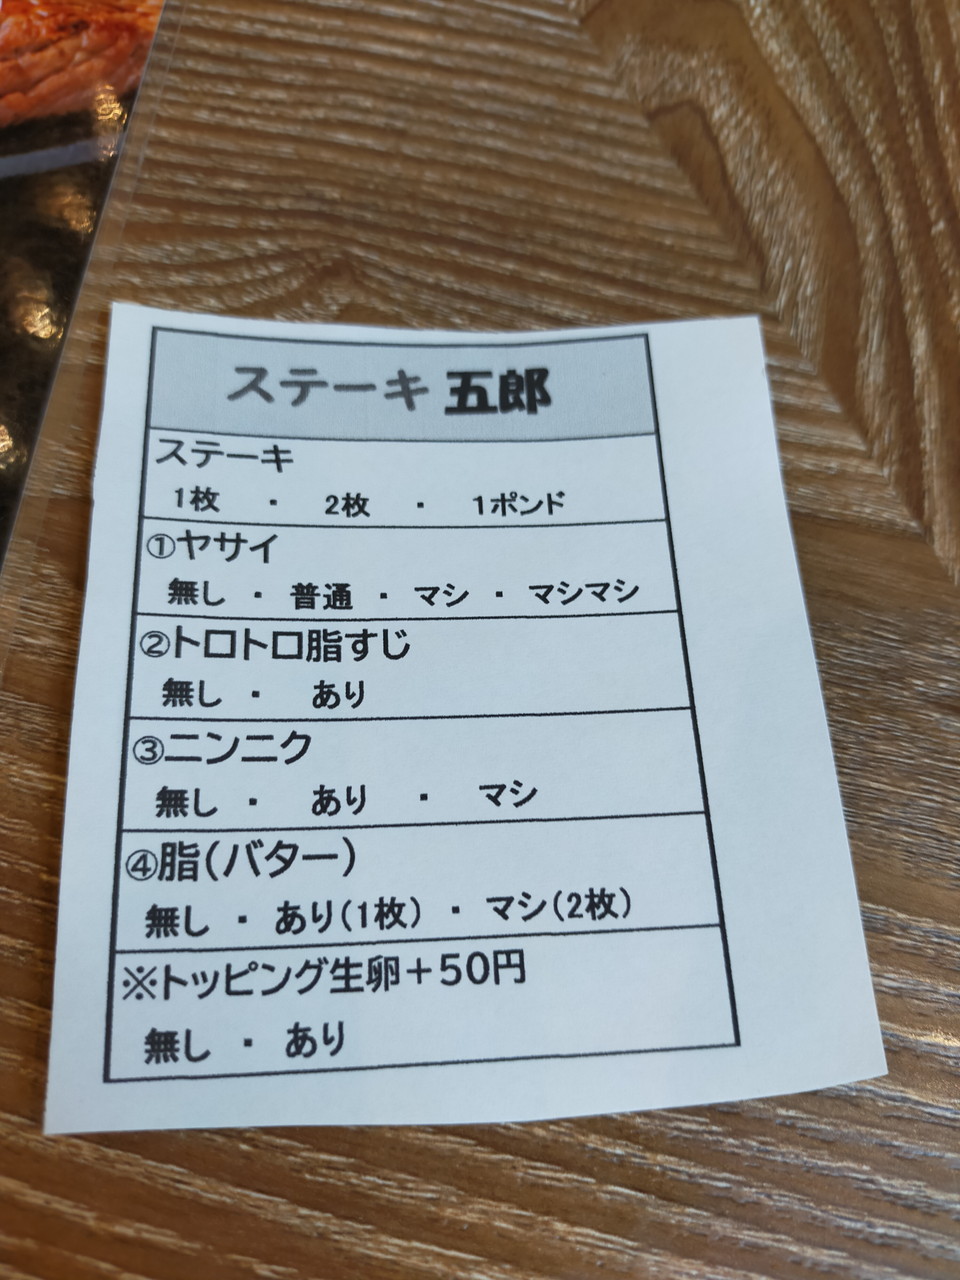 ステーキ 五郎
ステーキ
1枚 ・ 2枚 ・ 1ポンド
①ヤサイ
無し ・ 普通 ・ マシ ・ マシマシ
②トロトロ脂すじ
無し ・ あり
③ニンニク
無し ・ あり ・ マシ
④脂(バター)
無し ・ あり(1枚) ・ マシ(2枚)
※トッピング生卵+50円
無し ・ あり